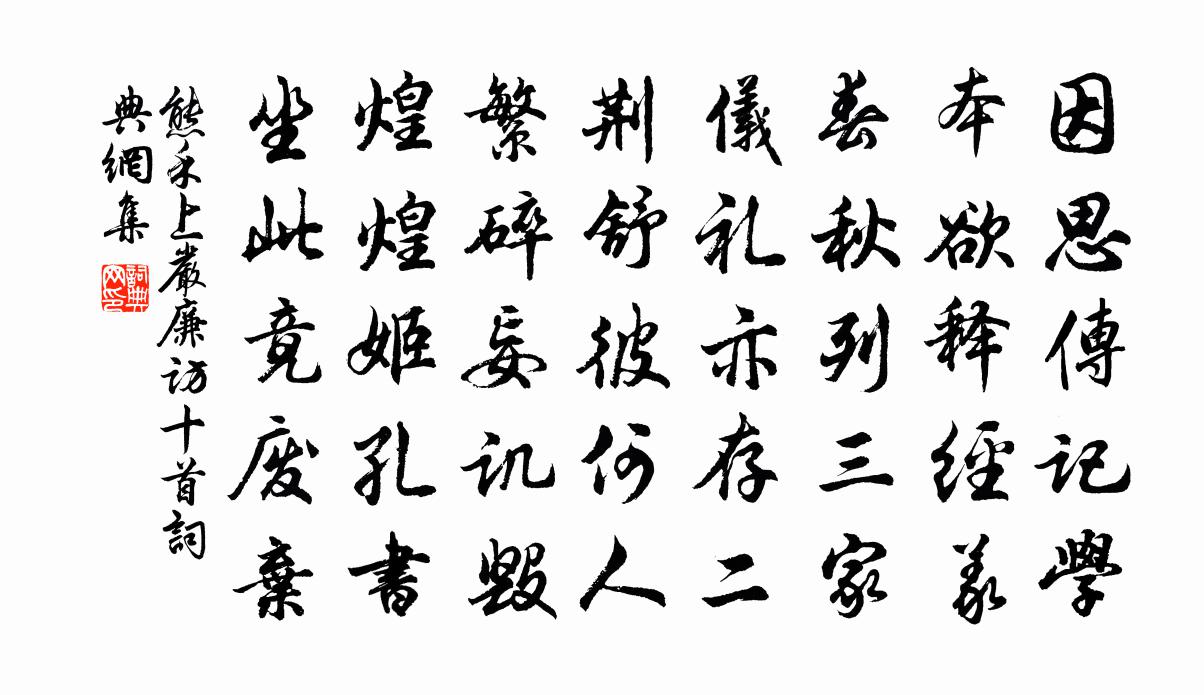 因思傳記學
本欲释經義
春秋列三家
儀礼亦存二
荆舒彼何人
繁碎妄讥毁
煌煌姬孔書
坐此竟废棄
熊禾上嚴廉訪十首詞
典網集
詞典
网印